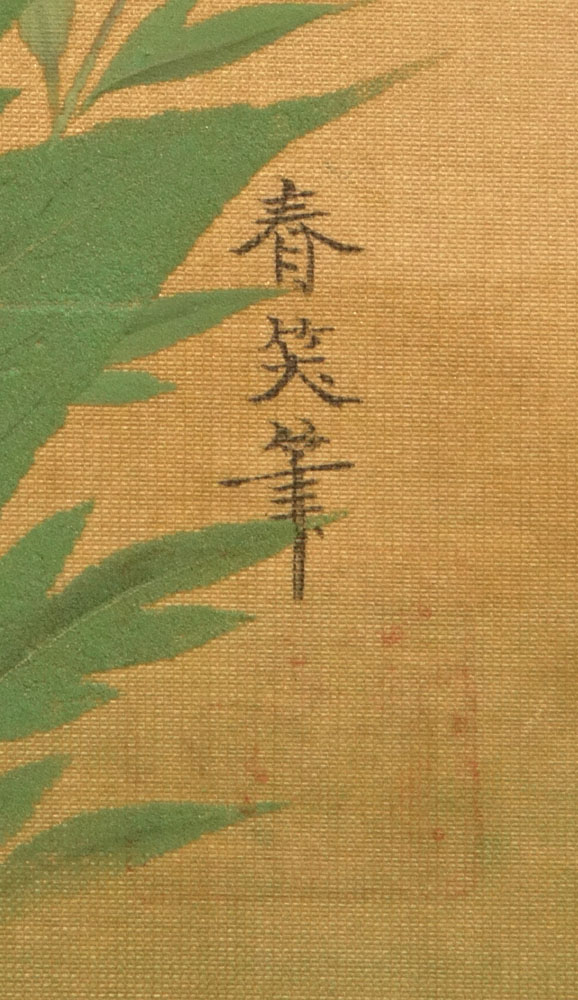 春笑筆